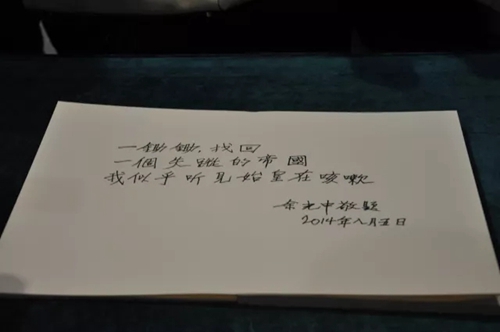 一鋤鋤，找回
一個失蹤的帝國
我似乎听見始皇在咳嗽
余光中敬題
2014年八月五日